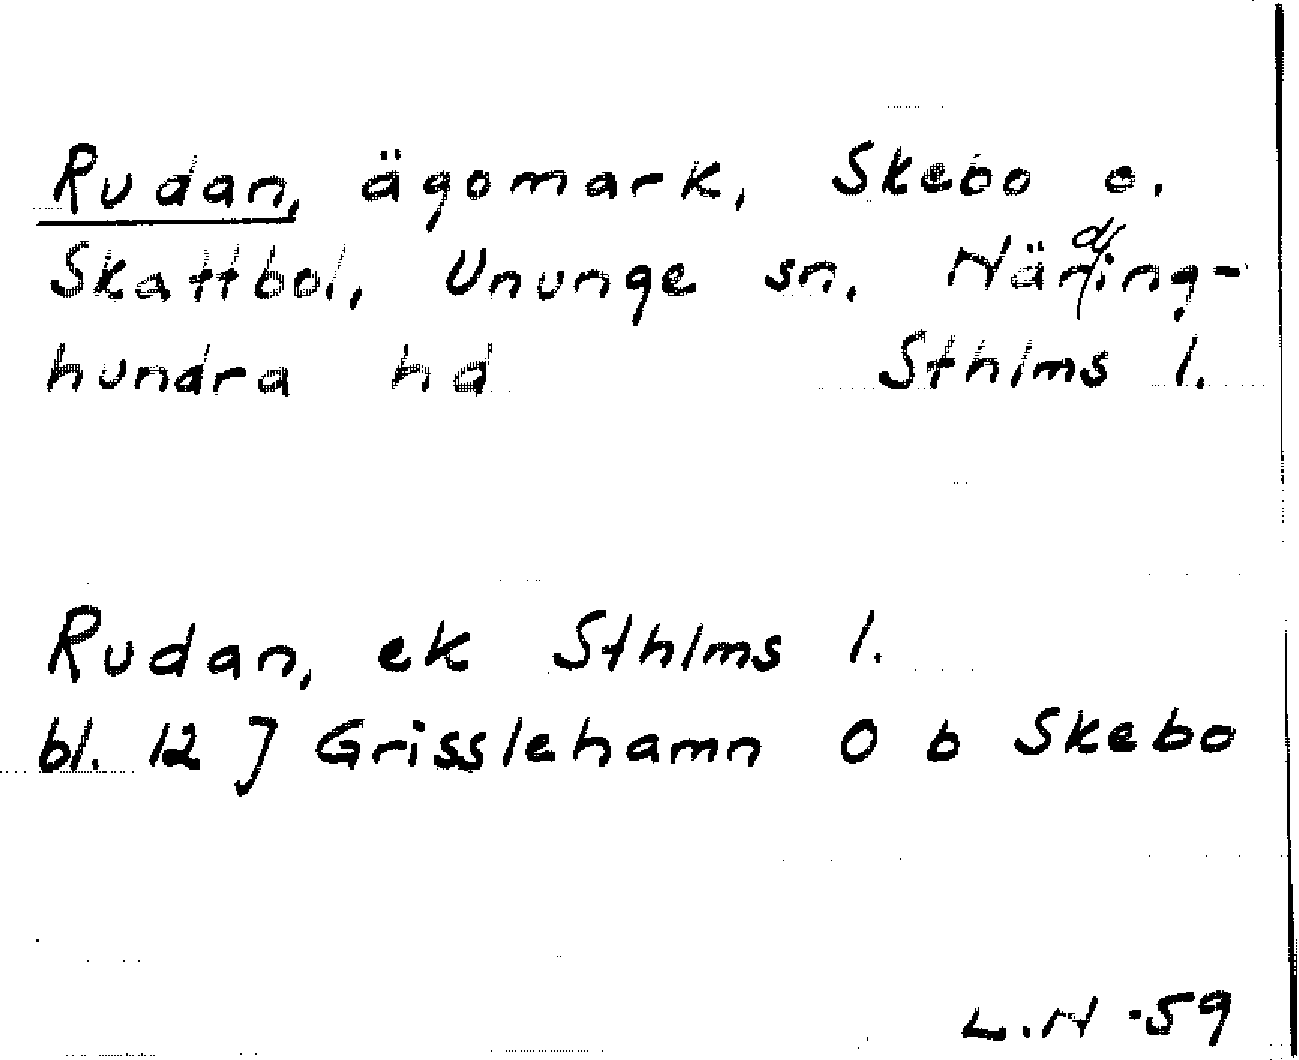 Rudan, ägomark, Skebo o.
Skattbol, Ununge sn. Närding-
hundra hd Sthlms l.
Rudan, ek Sthlms l.
bl. 12 J Grisslehamn O b Skebo
L.N -59